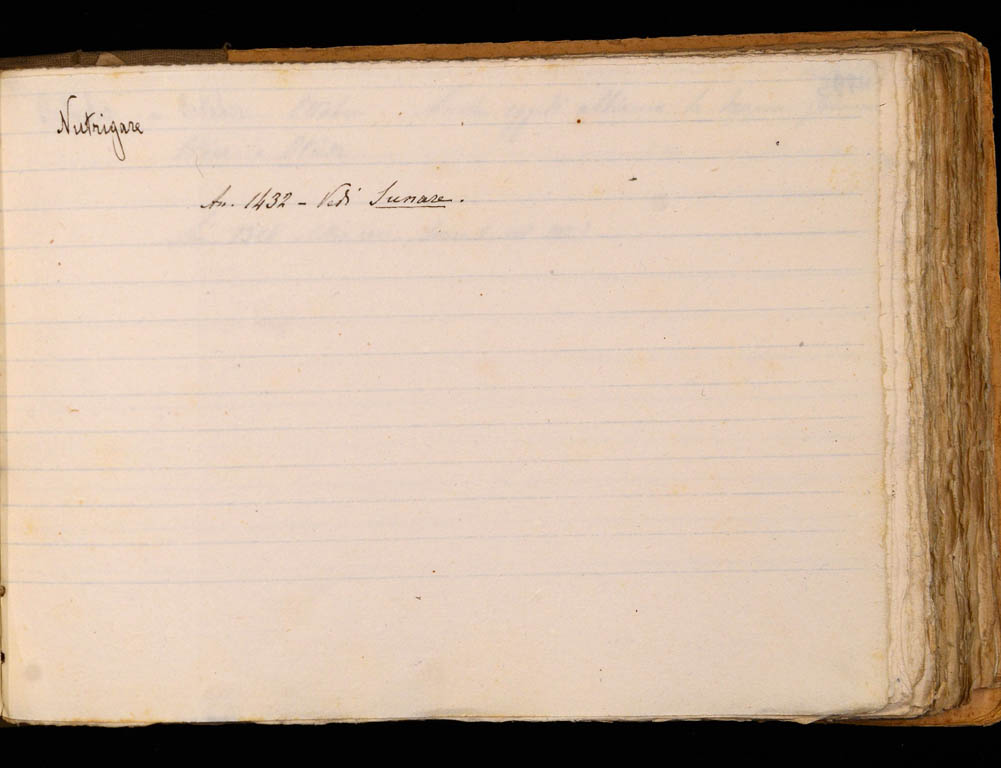 Nutrigare
An. 1432 - Vedi Sunare.